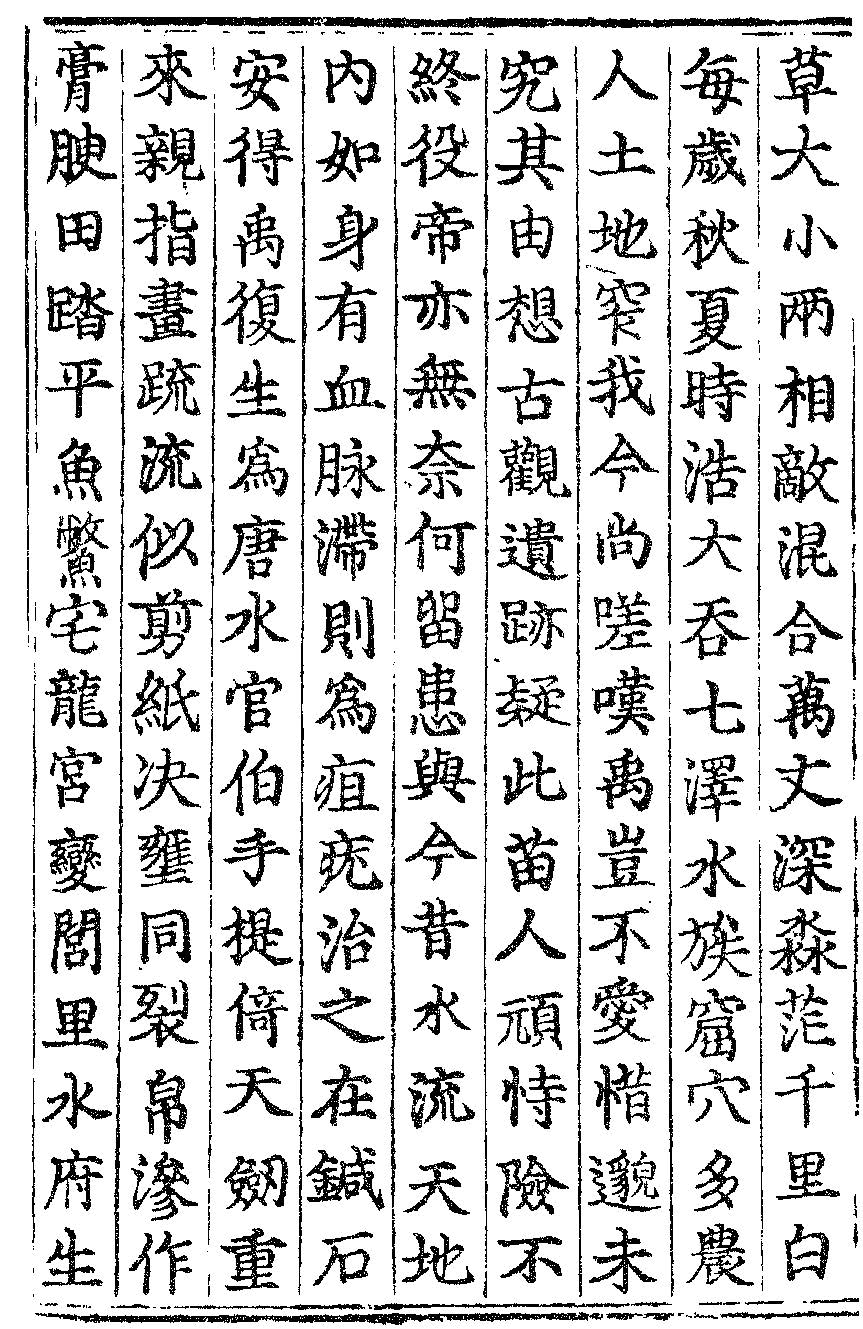 草大小兩相敵混合萬丈深淼茫千里白
每歲秋夏時浩大吞七澤水族窟穴多農
人土地窄我今尚嗟嘆禹豈不愛惜邈未
究其由想古觀遺跡疑此苗人頑恃險不
終役帝亦無奈何留患與今昔水流天地
內如身有血脉滯則為疽疣治之在鍼石
安得禹復生為唐水官伯手提倚天劒重
來親指畫疏流似剪紙决壅同裂帛滲作
膏腴田踏平魚鱉宅龍宮變閭里水府生